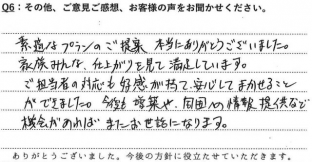 Q6：その他、ご意見ご感想、お客様の声をお聞かせください。
素適なプランのご提案 本当にありがとうございました。
家族みんな、仕上がりを見て満足しています。
ご担当者の対応も好感が持て、安心してまかせること
ができました。今後も増築や、周囲への情報提供など
機会があれば またお世話になります。
ありがとうございました。今後の方針に役立たせていただきます。